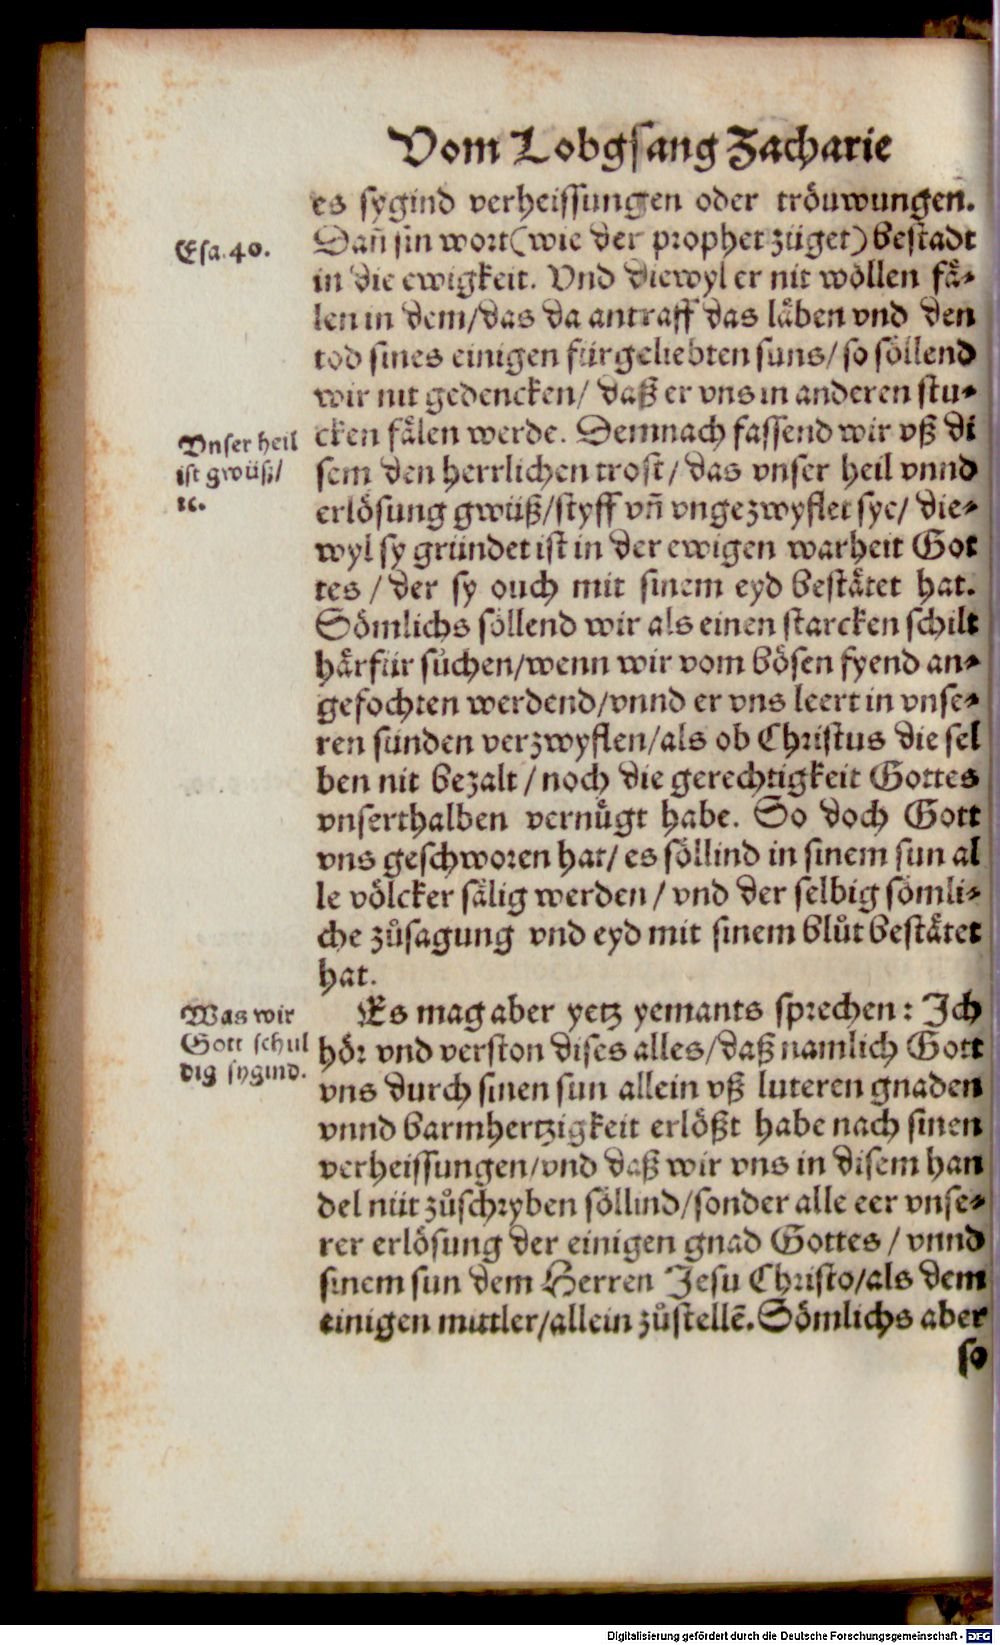 Vom Lobgsang Zacharie
es sygind verheissungen oder tröuwungen.
Esa. 40.
Dañ sin wort (wie der prophet züget) bestadt
in die ewigkeit. Vnd diewyl er nit wöllen fä-
len in dem/das da antraff das läben vnd den
tod sines einigen fürgeliebten suns/ so söllend
wir nit gedencken/ daß er vns in anderen stu-
cken fälen werde. Demnach fassend wir vß di
Vnser heil
ist gwüß/
ꝛc.
sem den herrlichen trost/ das vnser heil vnnd
erlösung gwüß/styff vñ vngezwyflet sye/ die-
wyl sy gründet ist in der ewigen warheit Got
tes / der sy ouch mit sinem eyd bestätet hat.
Sömlichs söllend wir als einen starcken schilt
härfür suͦchen/wenn wir vom bösen fyend an-
gefochten werdend/vnnd er vns leert in vnse-
ren sünden verzwyflen/als ob Christus die sel
ben nit bezalt / noch die gerechtigkeit Gottes
vnserthalben vernuͤgt habe. So doch Gott
vns geschworen hat/ es söllind in sinem sun al
le völcker sälig werden / vnd der selbig sömli-
che zuͦsagung vnd eyd mit sinem bluͦt bestätet
hat.
Was wir
Gott schul
dig sygind.
Es mag aber yetz yemants sprechen: Ich
hör vnd verston dises alles/daß namlich Gott
vns durch sinen sun allein vß luteren gnaden
vnnd barmhertzigkeit erlößt habe nach sinen
verheissungen/vnd daß wir vns in disem han
del nüt zuͦschryben söllind/sonder alle eer vnse-
rer erlösung der einigen gnad Gottes / vnnd
sinem sun dem Herren Jesu Christo/als dem
einigen mittler/allein zuͦstellē. Sömlichs aber
so
Digitalisierung gefördert durch die Deutsche Forschungsgemeinschaft - DFG